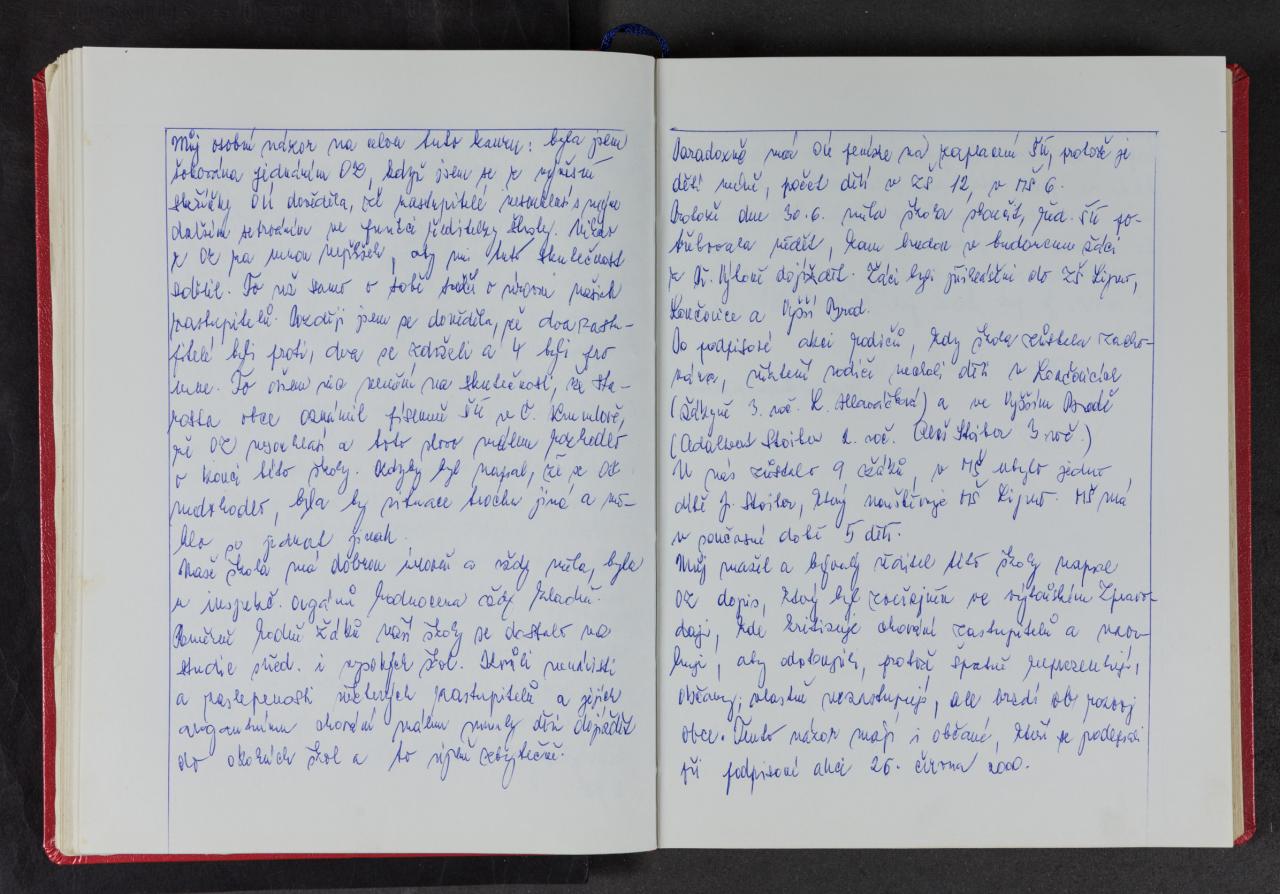 Můj osobní názor na celou tuto kauzu: byla jsem
šokována jednáním OZ, když jsem se z vývěsní
skříňky OÚ dověděla, že zastupitelé nesouhlasí s mým
dalším setrváním ve funkci ředitelky školy. Nikdo
z OZ za mnou nepřišel, aby mi tuto skutečnost
sdělil. To už samo o sobě svědčí o úrovni našich
zastupitelů. Později jsem se dověděla, že dva zastu-
pitelé byli proti, dva se zdrželi a 4 byli pro
mne. To ovšem nic nemění na skutečnosti, že sta-
rosta obce oznámil písemně ŠÚ v Č. Krumlově,
že OZ nesouhlasí a toto slovo málem rozhodlo
o konci této školy. Kdyby byl napsal, že se OZ
nerozhodlo, byla by situace trochu jiná a mo-
hlo se jednat jinak.
Naše škola má dobrou úroveň a vždy měla, byla
u inspekč. orgánů hodnocena vždy kladně.
Poměrně hodně žáků naší školy se dostalo na
studie střed. i vysokých škol. Kvůli nenávisti
a zaslepenosti některých zastupitelů a jejich
arogantnímu chování málem musely děti dojíždět
do okolních škol a to úplně zbytečně.
Paradoxně má OÚ peníze na zaplacení ŠÚ, protože je
dětí méně, počet dětí v ZŠ 12, v MŠ 6.
Protože dne 30.6. měla škola skončit, řed. ŠÚ po-
třebovala vědět, kam budou v budoucnu žáci
z Př. Výtoně dojíždět. Žáci byli přihlášeni do ZŠ Lipno,
Loučovice a Vyšší Brod.
Po podpisové akci rodičů, kdy škola zůstala zacho-
vána, někteří rodiče nechali děti v Loučovicích
(žákyně 3. roč. K.) a ve Vyšším Brodě
(Adalbert Stoiber 2. roč. Aleš Stoiber 3. roč.)
U nás zůstalo 9 žáků, v MŠ ubylo jedno
dítě J. Stoiber, který navštěvuje MŠ Lipno. MŠ má
v současné době 5 dětí.
Můj manžel a bývalý ředitel této školy napsal
OZ dopis, který byl zveřejněn ve výtoňském Zpravo-
daji, kde kritizuje chování zastupitelů a navr-
huje, aby odstoupili, protože špatně reprezentují,
občany, vlastně nezastupují, ale brzdí ob rozvoj
obce. Tento názor mají i občané, kteří se podepsali
při podpisové akci 26. června 2000.